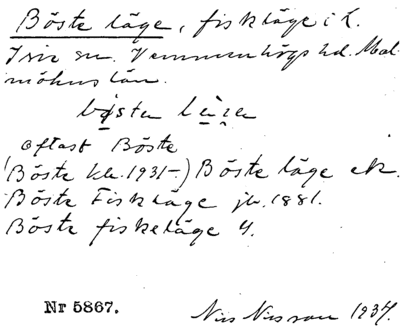 Böste läge, fiskläge i L.
Isie sn. Vemmenhögs hd. Mal-
möhus län.
bøstə
oftast Böste
(Böste kla. 1931-) Böste läge ek.
Böste Fiskläge jb. 1881.
Böste fiskeläge
Nr 5867.
Nils Nilsson 1937.